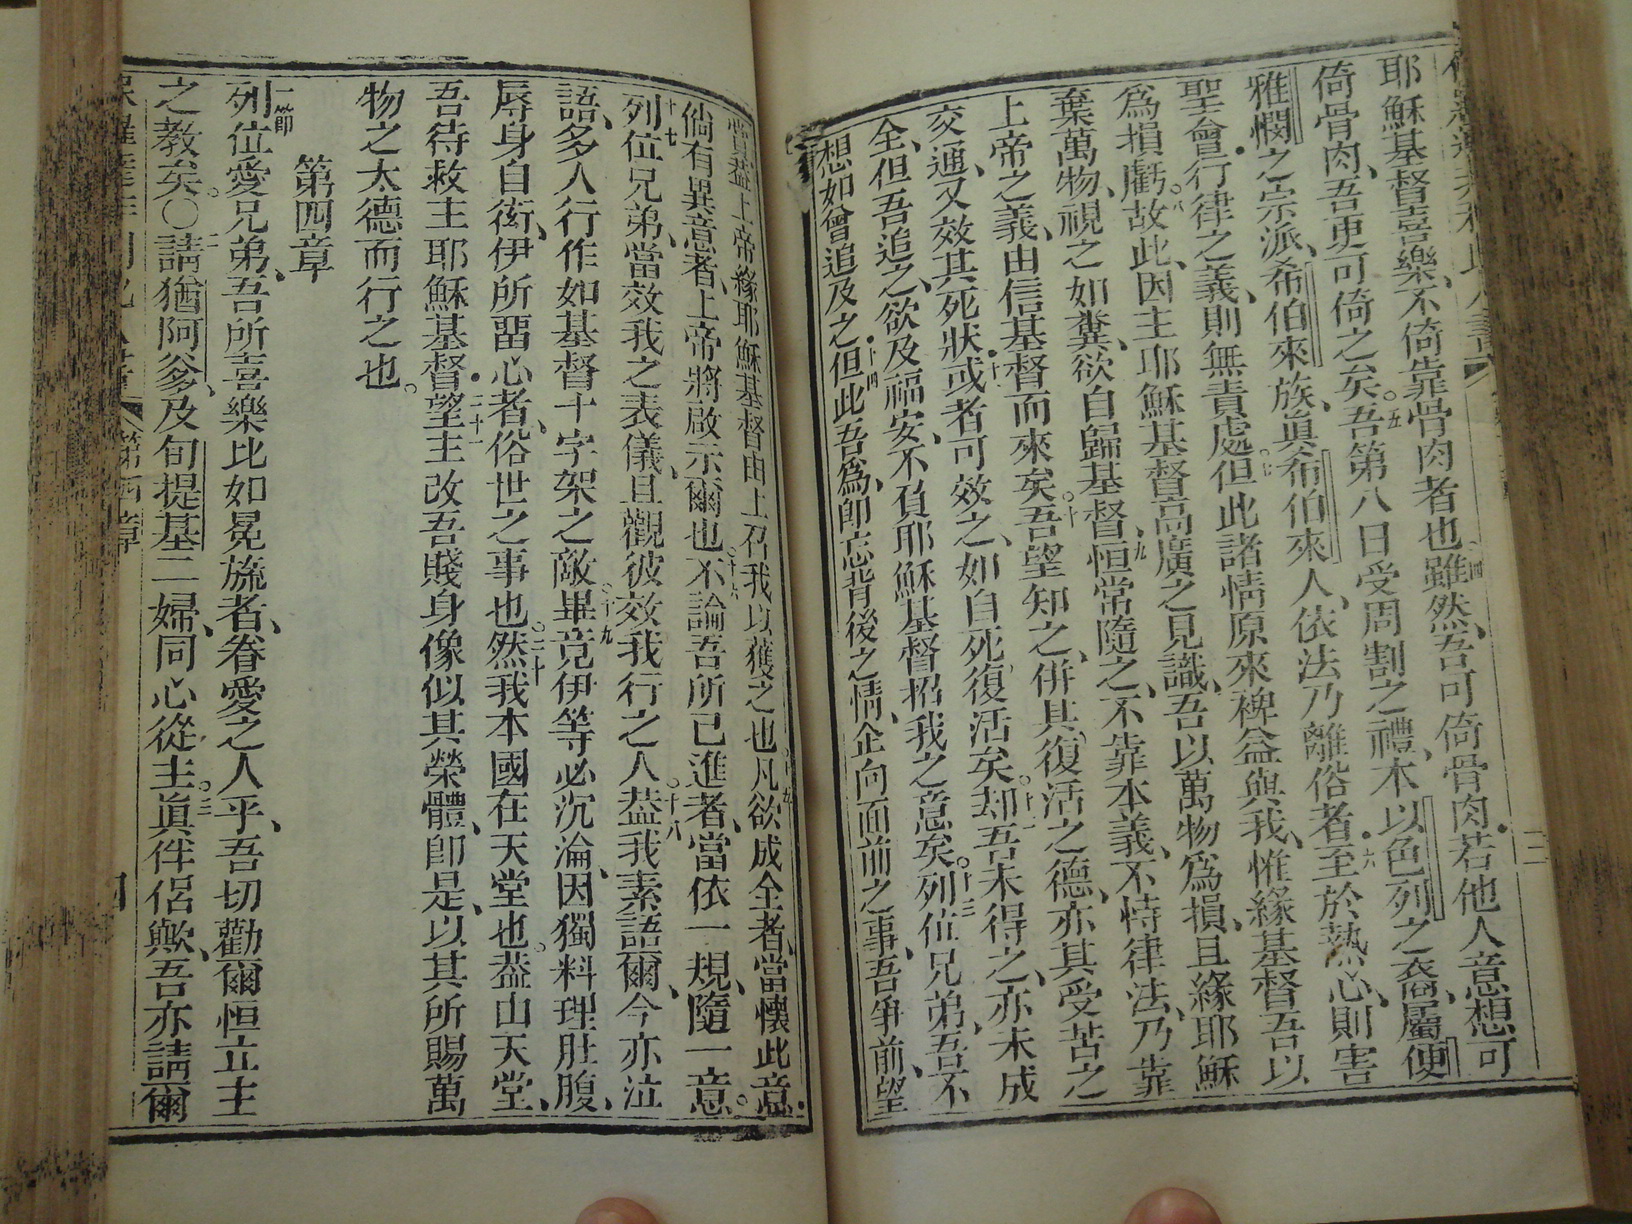 耶穌基督喜樂、不倚靠骨肉者也。四雖然、吾可倚骨肉、若他人意想可
倚骨肉、吾更可倚之矣。五吾第八日受周割之禮、本以色列之裔、屬便
雅憫之宗派、希伯來族、眞希伯來人、依法乃離俗者、六至於熱心、則害
聖會、行律之義、則無責處。七但此諸情原來裨益與我、惟緣基督吾以
爲損虧。八故此、因主耶穌基督高廣之見識、吾以萬物爲損、且緣耶穌
棄萬物、視之如糞、欲自歸基督、九恒常隨之、不靠本義、不恃律法、乃靠
上帝之義、由信基督而來矣。十吾望知之、併其復活之德、亦其受苦之
交通、又效其死狀、十一或者可效之、如自死復活矣。十二却吾未得之、亦未成
全、但吾追之、欲及福安、不負耶穌基督招我之意矣。十三列位兄弟、吾不
想如曾追及之、十四但此吾爲、卽忘背後之情、企向面前之事、吾爭前、望
賞、葢上帝緣耶穌基督由上召我以獲之也。十五凡欲成全者、當懷此意、
倘有異意者、上帝將啟示爾也。十六不論吾所已進者、當依一規、隨一意。
十七列位兄弟、當效我之表儀、且觀彼效我行之人。十八葢我素語爾、今亦泣
語、多人行作如基督十字架之敵。十九畢竟伊等必沉淪、因獨料理肚腹、
辱身自衒、伊所留心者、俗世之事也。二十然我本國在天堂也。葢由天堂、
吾待救主耶穌基督、二十一望主改吾賤身像似其榮體、卽是、以其所賜萬
物之大德而行之也。
第四章
一節列位愛兄弟、吾所喜樂比如冕旒者、眷愛之人乎、吾切勸爾恒立主
之教矣。〇二請猶阿爹、及旬提基二婦、同心從主。三眞伴侶歟、吾亦請爾
第四章